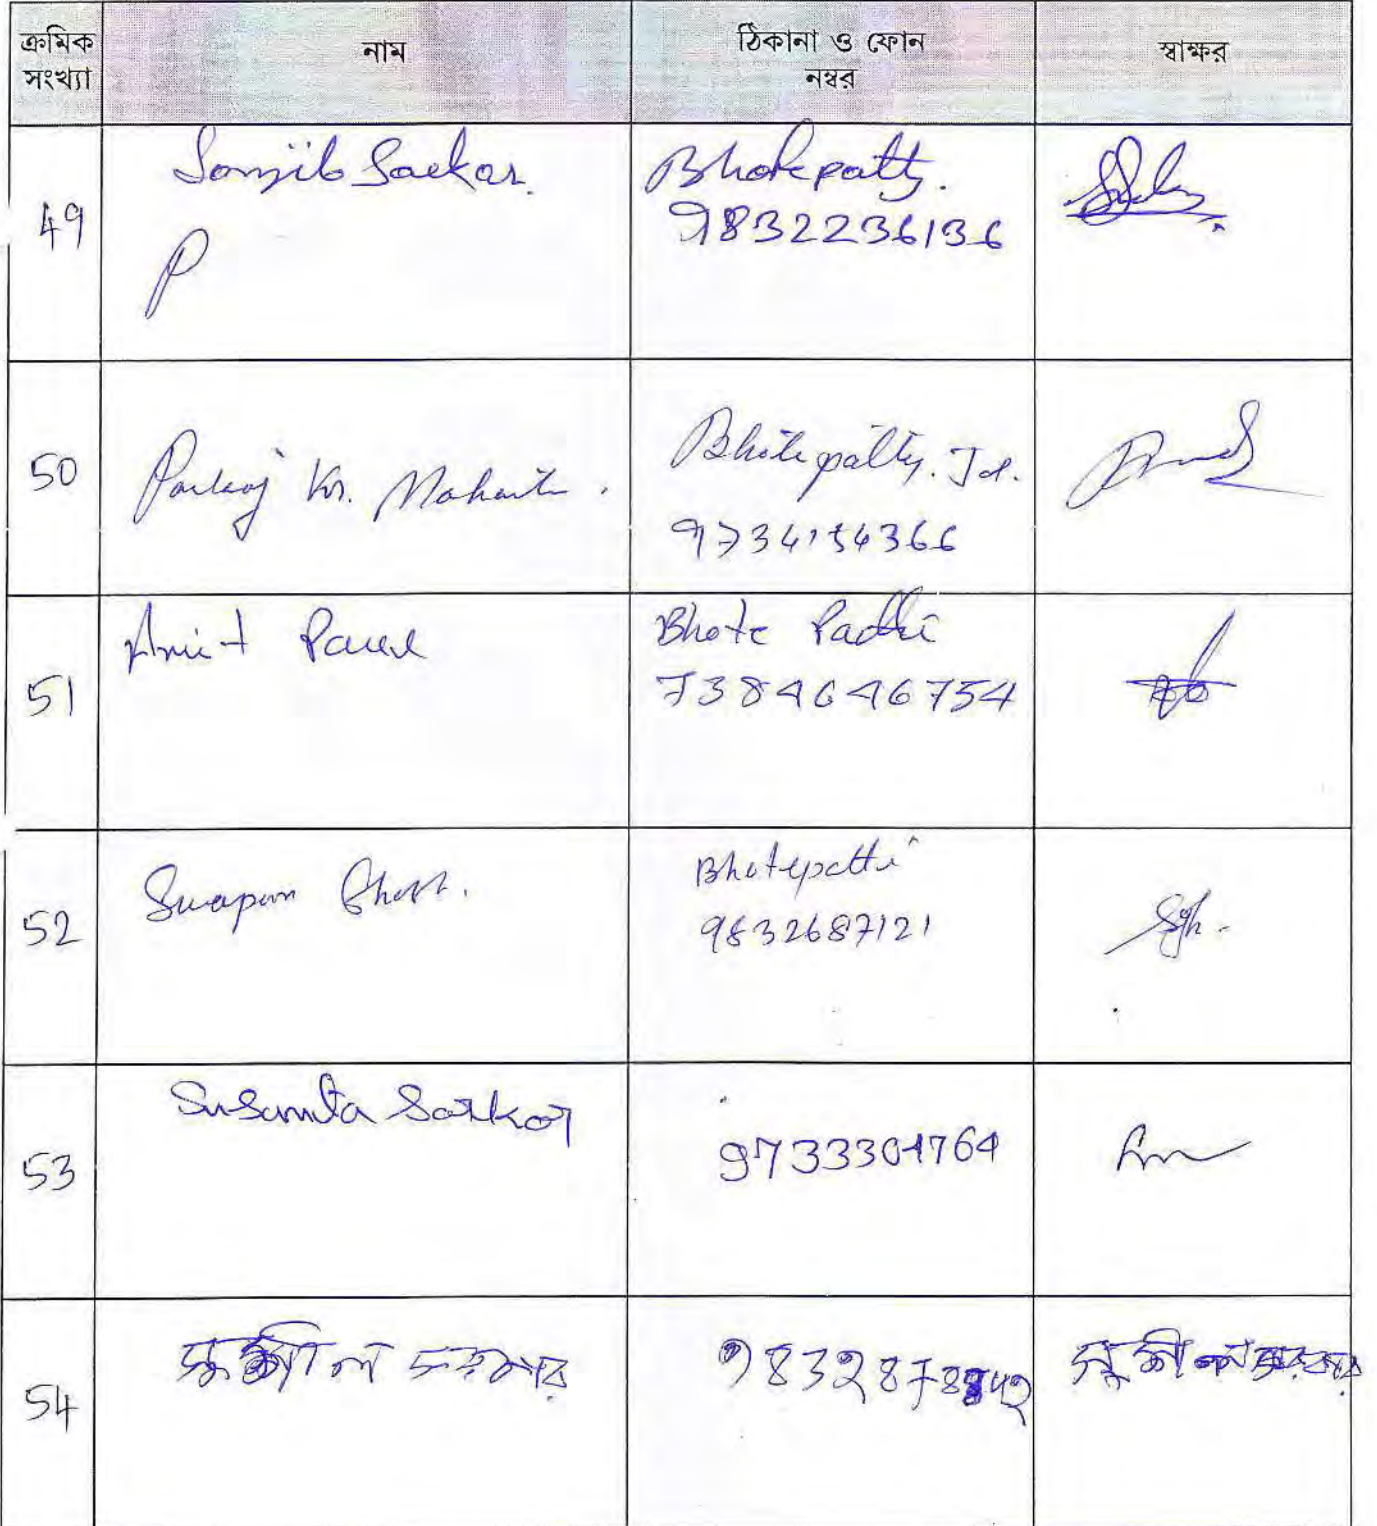 ক্রমিক সংখ্যা
নাম
ঠিকানা ও ফোন নম্বর
স্বাক্ষর
49
Sanjib Sarkar.
P
Bhotepatty.
9832236136
50
Pankaj Kr. Mahanta.
Bhotepatty.
51
Amit Paul
Bhote Patti
7384646754
52
Swapan Ghosh.
Bhotepatti
9832687121
53
Susanta Sarkar
54
সুশীল সরকার
সুশীল সরকার